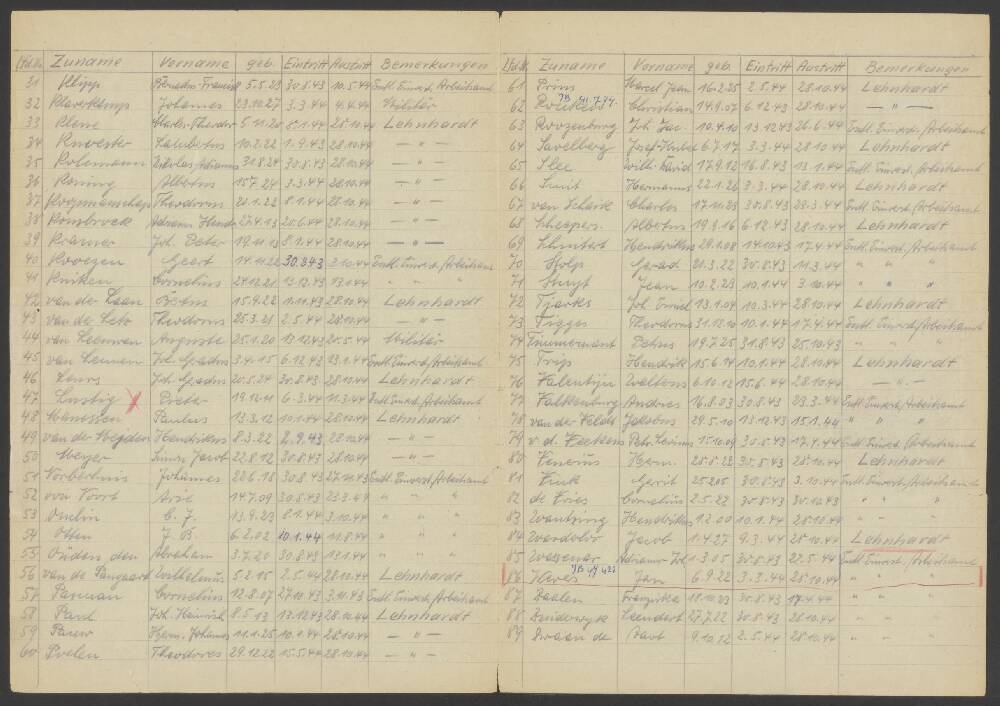 Lfd.Nr. Zuname Vorname geb. Eintritt Austritt Bemerkungen
31 Klijp Franciss 5.5.23 30.8.43 10.5.44 Entl. Einverst./Arbeitsamt
32 Klaverkamp Johannes 23.10.27 3.3.44 4.4.44 Militär
33 Klene 5.11.20 8.1.44 28.10.44 Lehnhardt
34 Knuvester Lambertus 10.2.22 1.9.43 28.10.44 — " —
35 Kolemann Nikolas Adrianus 31.8.24 30.8.43 28.10.44 — " —
36 Koning Albertus 15.7.24 3.3.44 28.10.44 — " —
37 Theodorus 20.1.22 8.1.44 28.10.44 — " —
38 Kombrock Adrian 27.4.13 20.6.44 28.10.44 — " —
39 Kramer Joh. Peter 19.11.13 8.1.44 28.10.44 — " —
40 Geert 14.11.22 30.9.43 2.10.44 Entl. Einverst./Arbeitsamt
41 Kniken Cornelius 24.12.21 13.12.43 13.1.44 " " "
42 van der Laan Betus 15.9.22 1.11.43 28.10.44 Lehnhardt
43 van der Lek Theodorus 25.3.21 2.5.44 28.10.44 — " —
44 van Leeuwen Auguste 25.1.20 13.12.43 21.5.44 Militär
45 van Leunen Joh. Gradus 3.4.15 6.12.43 23.1.44 Entl. Einverst./Arbeitsamt
46 Leurs Joh. Gradus 20.5.24 30.8.43 28.10.44 Lehnhardt
47 Lustig Pieter 19.12.11 6.3.44 11.3.44 Entl. Einverst./Arbeitsamt
48 Manossen Paulus 13.3.12 10.1.44 28.10.44 Lehnhardt
49 van der Meijden Hendrikus 8.3.22 2.9.43 28.10.44 — " —
50 Meyer Simon Jacob 22.8.12 30.8.43 28.10.44 — " —
51 Norbertus Johannes 22.6.18 30.8.43 27.11.43 Entl. Einverst./Arbeitsamt
52 van Voort Arie 14.7.09 30.8.43 23.3.44 " " "
53 C. J. 13.9.23 8.1.44 3.10.44 " " "
54 Otten J. B. 6.2.02 10.1.44 10.8.44 " " "
55 Ouden den Abraham 3.7.20 30.8.43 13.1.44 " " "
56 van de Wilhelmus 5.2.15 2.5.44 28.10.44 Lehnhardt
57 Cornelius 12.8.07 27.10.43 3.11.43 Entl. Einverst./Arbeitsamt
58 Paul Joh. Heinrich 8.5.13 13.12.43 28.10.44 Lehnhardt
59 Herm. Johannes 11.1.25 10.1.44 28.10.44 — " —
60 Poelen Theodores 29.12.22 15.5.44 28.10.44 — " —
Lfd.Nr. Zuname Vorname geb. Eintritt Austritt Bemerkungen
61 Prins Marcel Jean 16.2.25 2.5.44 28.10.44 Lehnhardt
62 Christian 14.9.07 6.12.43 28.10.44 — " —
63 Roozenburg Joh. Jac. 10.4.10 13.12.43 26.6.44 Entl. Einverst./Arbeitsamt
64 Savelberg Josef Hubert 6.7.17 3.3.44 28.10.44 Lehnhardt
65 Slee Will. David 17.9.12 16.8.43 13.1.44 Entl. Einverst./Arbeitsamt
66 Smit Hermanus 22.1.26 3.3.44 28.10.44 Lehnhardt
67 van Schaik Charles 17.11.23 30.8.43 28.3.44 Entl. Einverst./Arbeitsamt
68 Schepers Albertus 19.9.16 6.12.43 28.10.44 Lehnhardt
69 Schubert Hendrikus 29.1.08 14.10.43 17.4.44 Entl. Einverst./Arbeitsamt
70 Stolp Gerad 21.3.22 30.8.43 11.3.44 " " "
71 Stuyt Jean 10.2.23 10.1.44 3.10.44 " " "
72 Tjarks Joh. Emiel 13.1.04 10.3.44 28.10.44 Lehnhardt
73 Tigges Theodorus 31.12.10 10.1.44 17.4.44 Entl. Einverst./Arbeitsamt
74 Petrus 19.7.25 31.8.43 25.10.43 " " "
75 Trip Hendrik 15.6.14 10.1.44 28.10.44 Lehnhardt
76 Valentijn 6.10.12 15.6.44 28.10.44 — " —
77 Falkenburg Andries 16.8.03 30.8.43 23.3.44 Entl. Einverst./Arbeitsamt
78 van der Velde Jakobus 29.5.10 13.12.43 15.1.44 " " "
79 v. d. 15.10.09 30.8.43 17.4.44 Entl. Einverst./Arbeitsamt
80 Venerius Herm. 28.8.22 30.8.43 28.10.44 Lehnhardt
81 Fink Gerrit 25.2.05 30.8.43 3.10.44 Entl. Einverst./Arbeitsamt
82 de Fries Cornelius 2.5.22 30.8.43 30.12.43 " " "
83 Wantzing Hendrikus 1.2.00 10.1.44 28.10.44 " " "
84 Jacob 1.4.27 9.3.44 28.10.44 Lehnhardt
85 Wassenar Adrianus Joh. 1.3.05 30.8.43 22.5.44 Entl. Einverst./Arbeitsamt
86 Jan 6.9.22 3.3.44 28.10.44 " " "
87 Baalen Franziska 18.10.23 30.8.43 17.4.44 " " "
88 Leendert 27.7.22 30.8.43 28.10.44 " " "
89 Zwaan de Bart 9.10.22 2.5.44 28.10.44 " " "